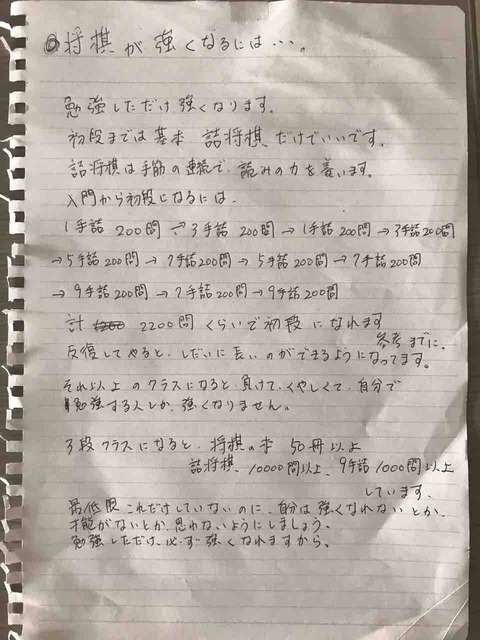 ◎将棋が強くなるには…。
勉強しただけ強くなります。
初段までは基本 詰将棋 だけでいいです。
詰将棋は手筋の連続で、詰みの力を養います。
入門から初段になるには、
1手詰 200問 → 3手詰 200問 → 1手詰 200問 → 3手詰 200問
→ 5手詰 200問 → 7手詰 200問 → 5手詰 200問 → 7手詰 200問
→ 9手詰 200問 → 7手詰 200問 → 9手詰 200問
計 2200問 くらいで初段になれます
参考までに、
反復してやると、しだいに長いのができるようになってます。
それ以上のクラスになると、負けて、くやしくて、自分で
勉強する人しか、強くなりません。
3段クラスになると、将棋の本 50冊以上
詰将棋、10000問以上、9手詰 1000問以上
しています、
最低限これだけしていないのに、自分は強くなれないとか、
才能がないとか、思わないようにしましょう。
勉強しただけ、必ず強くなれますから。